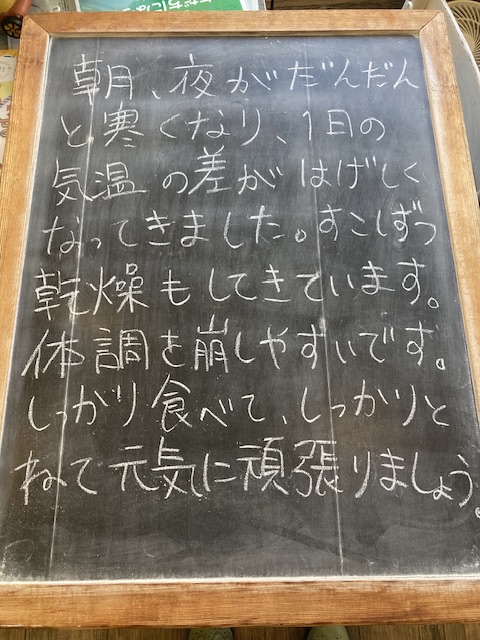 朝、夜がだんだん
と寒くなり、1日の
気温の差がはげしく
なってきました。すこしずつ
乾燥もしてきています。
体調を崩しやすいです。
しっかり食べて、しっかりと
ねて元気に頑張りましょう。